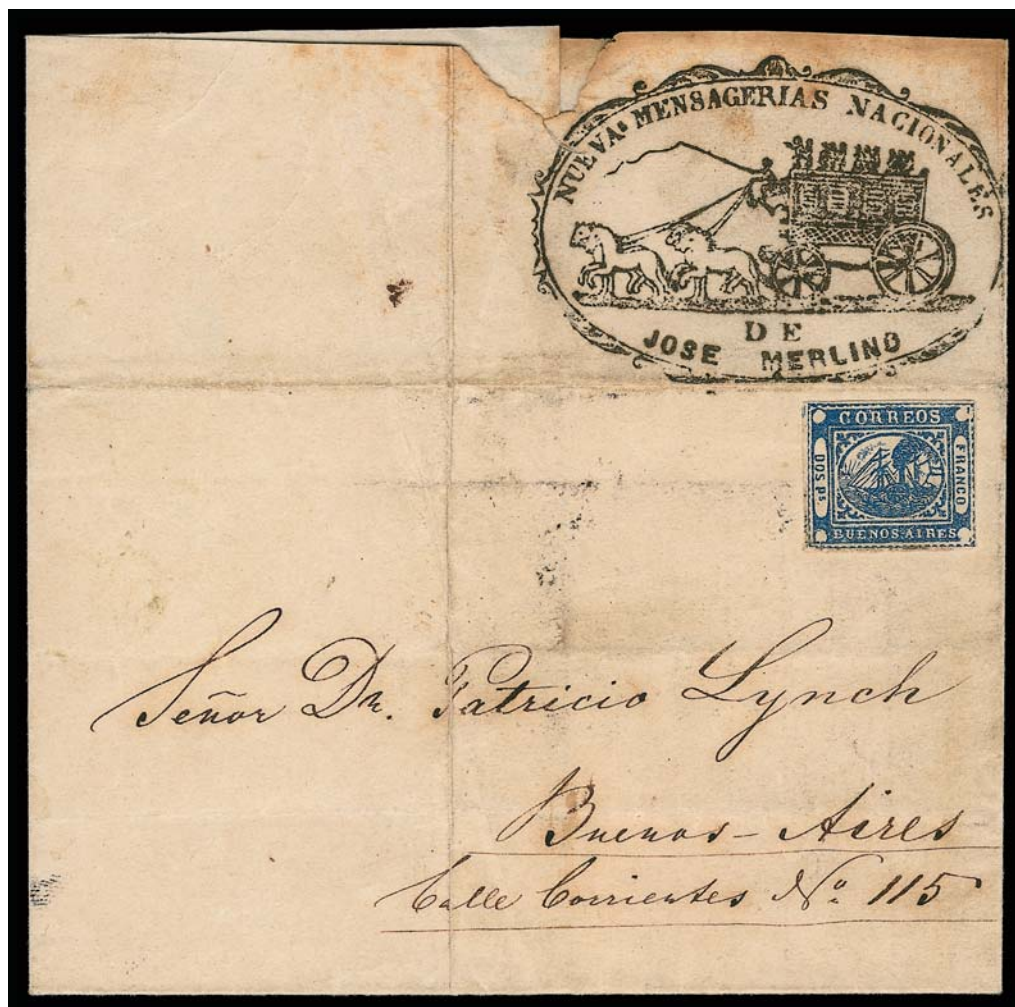 NUEVAS MENSAGERIAS NACIONALES
DE
JOSE MERLINO
CORREOS
DOS Ps
FRANCO
BUENOS AIRES
Señor Dn. Patricio Lynch
Buenos-Aires
Calle Corrientes No. 115